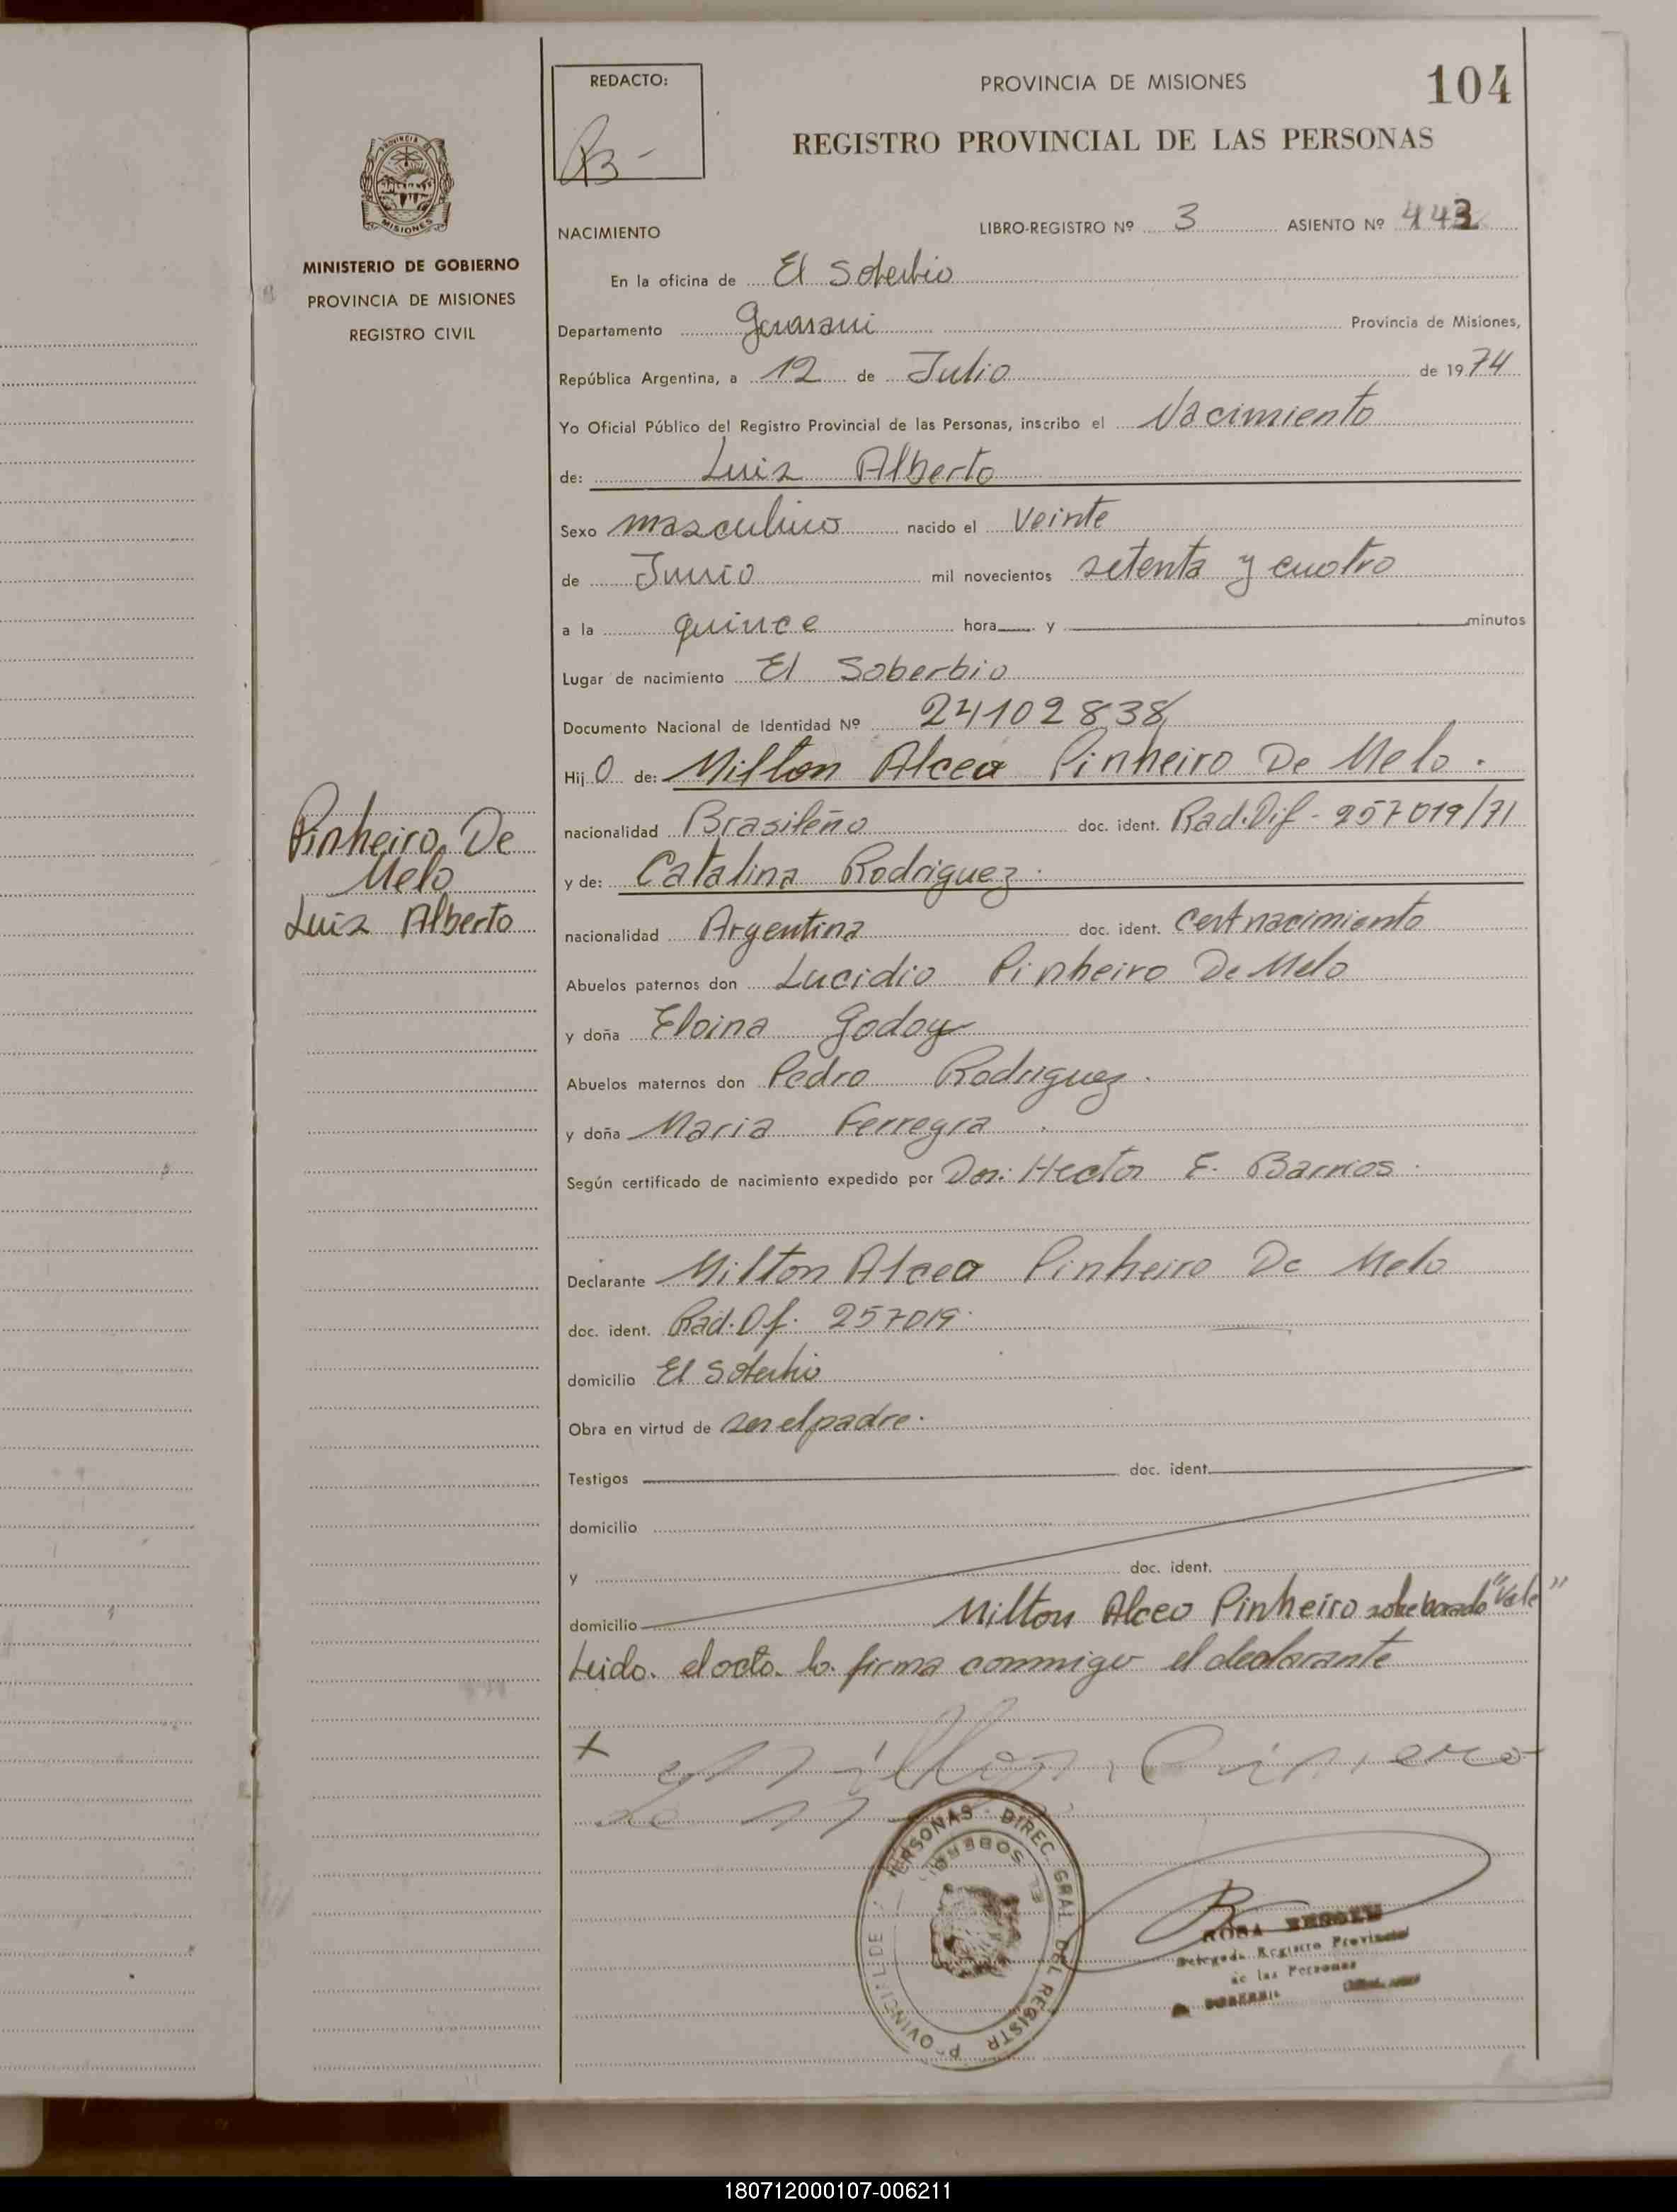 104
REDACTO:
PROVINCIA DE MISIONES
REGISTRO PROVINCIAL DE LAS PERSONAS
PROVINCIA DE
MISIONES
MINISTERIO DE GOBIERNO
PROVINCIA DE MISIONES
REGISTRO CIVIL
NACIMIENTO LIBRO-REGISTRO Nº 3 ASIENTO Nº 443
En la oficina de El Soberbio
Departamento Guarani Provincia de Misiones,
República Argentina, a 12 de Julio de 1974
Yo Oficial Público del Registro Provincial de las Personas, inscribo el Nacimiento
de: Luis Alberto
Sexo masculino nacido el Veinte
de Junio mil novecientos setenta y cuatro
a la quince hora y minutos
Lugar de nacimiento El Soberbio
Documento Nacional de Identidad Nº 24102838
Hijo de: Milton Alceo Pinheiro De Melo.
nacionalidad Brasileño doc. ident. Rad.Dif-257019/71
y de: Catalina Rodriguez.
nacionalidad Argentina doc. ident. Cert nacimiento
Pinheiro De
Melo
Luis Alberto
Abuelos paternos don Lucidio Pinheiro De Melo
y doña Eloina Godoy
Abuelos maternos don Pedro Rodriguez.
y doña Maria Ferreyra.
Según certificado de nacimiento expedido por Hector E. Barrios.
Declarante Milton Alceo Pinheiro De Melo
doc. ident. Rad.Df. 257019.
domicilio El Soberbio
Obra en virtud de ser el padre.
Testigos doc. ident.
domicilio
y doc. ident.
domicilio Milton Alceo Pinheiro sobreborrado "Vale"
Leido el acto lo firma conmigo el declarante
X
PERSONAS - DIREC. GRAL. DEL REGISTR
ROSA
Delegada Registro Provincial
de las Personas
180712000107-006211